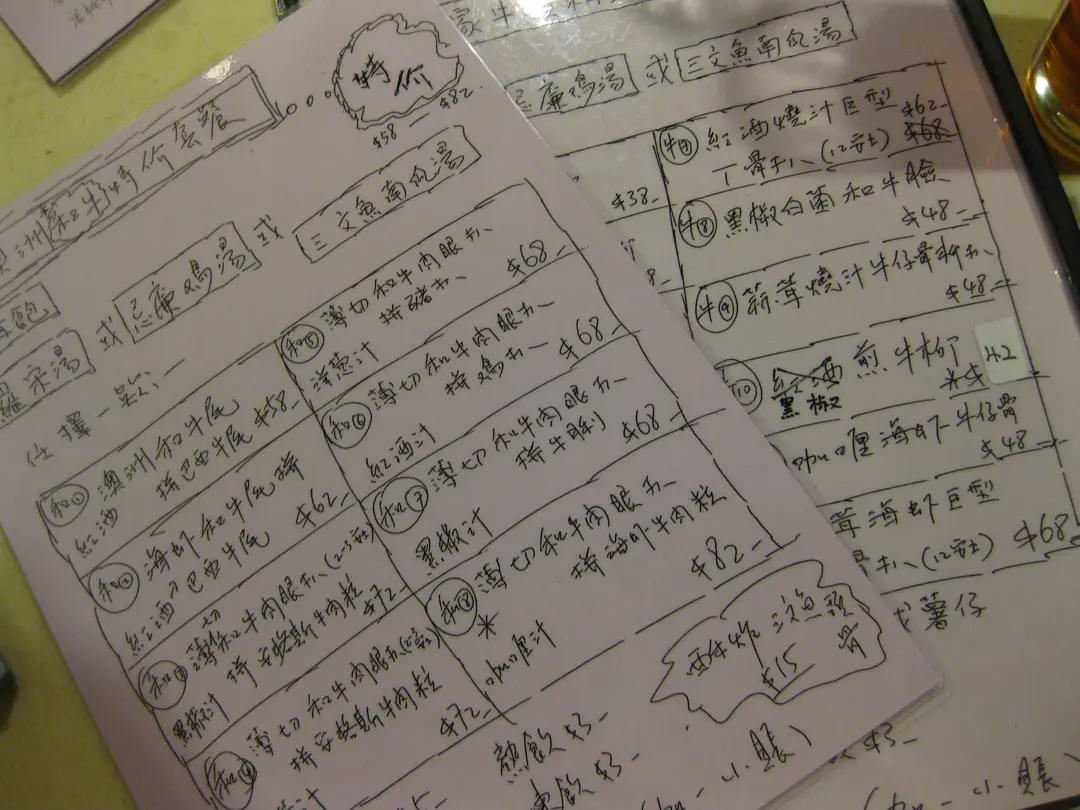 洲和牛特价套餐
特价
$58-$82
包
羅宋湯
或
忌廉鳥湯
或
三文魚南瓜湯
任擇一款:-
和①
澳洲和牛尾
拼巴西牛尾
$58-
紅酒
和②
海虾和牛尾拼
巴西牛尾
$62-
紅酒汁
和③
薄切和牛肉眼扒
拼安格斯牛肉粒
$72-
黑椒汁
和④
薄切和牛肉眼扒
拼安格斯牛肉粒
$72-
和⑤
薄切和牛肉眼扒
拼豬扒
$68-
洋葱汁
和⑥
薄切和牛肉眼扒
拼鳥扒
$68-
紅酒汁
和⑦
薄切和牛肉眼扒
拼牛脷
$68-
黑椒汁
和⑧
*
薄切和牛肉眼扒
拼海虾牛肉粒
$82-
咖喱汁
$15
熱飲$3-
凍飲$5-
小賬
忌廉鳥湯
或
三文魚南瓜湯
$38-
8-
牛⑦
紅酒燒汁巨型
丁骨扒(12安士)
$62-
$68
牛⑧
黑椒白菌和牛臉
$48-
牛⑨
燒汁牛仔骨拼扒
$48-
10
黑椒
煎牛柳
42
咖喱海虾牛仔骨
$48-
茸海虾巨型
骨扒(12安士)
$68-
或薯仔
飲$3-
小賬)